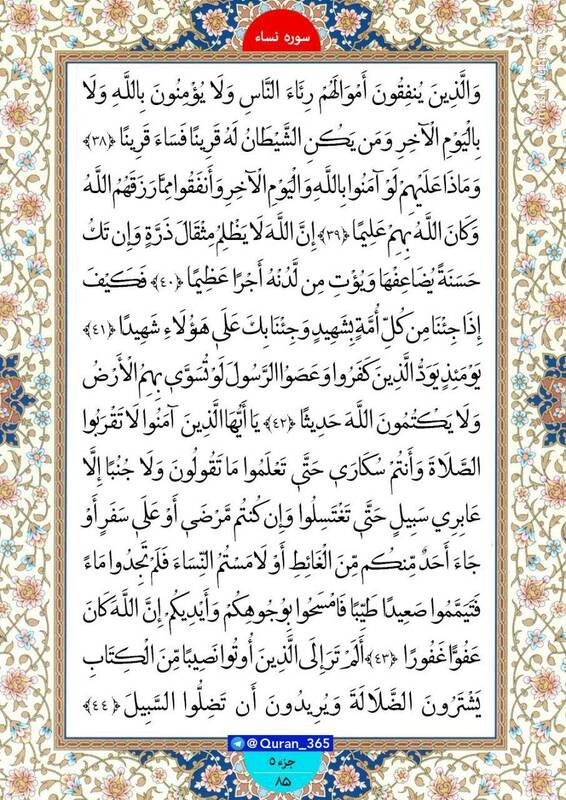 سوره نساء
وَالَّذِينَ يُنفِقُونَ أَمْوَالَهُمْ رِئَاءَ النَّاسِ وَلَا يُؤْمِنُونَ بِاللَّهِ وَلَا
بِالْيَوْمِ الْآخِرِ وَمَن يَكُنِ الشَّيْطَانُ لَهُ قَرِينًا فَسَاءَ قَرِينًا ﴿۳۸﴾
وَمَاذَا عَلَيْهِمْ لَوْ آمَنُوا بِاللَّهِ وَالْيَوْمِ الْآخِرِ وَأَنفَقُوا مِمَّا رَزَقَهُمُ اللَّهُ
وَكَانَ اللَّهُ بِهِمْ عَلِيمًا ﴿۳۹﴾ إِنَّ اللَّهَ لَا يَظْلِمُ مِثْقَالَ ذَرَّةٍ وَإِن تَكُ
حَسَنَةً يُضَاعِفْهَا وَيُؤْتِ مِن لَّدُنْهُ أَجْرًا عَظِيمًا ﴿۴۰﴾ فَكَيْفَ
إِذَا جِئْنَا مِن كُلِّ أُمَّةٍ بِشَهِيدٍ وَجِئْنَا بِكَ عَلَىٰ هَٰؤُلَاءِ شَهِيدًا ﴿۴۱﴾
يَوْمَئِذٍ يَوَدُّ الَّذِينَ كَفَرُوا وَعَصَوُا الرَّسُولَ لَوْ تُسَوَّىٰ بِهِمُ الْأَرْضُ
وَلَا يَكْتُمُونَ اللَّهَ حَدِيثًا ﴿۴۲﴾ يَا أَيُّهَا الَّذِينَ آمَنُوا لَا تَقْرَبُوا
الصَّلَاةَ وَأَنتُمْ سُكَارَىٰ حَتَّىٰ تَعْلَمُوا مَا تَقُولُونَ وَلَا جُنُبًا إِلَّا
عَابِرِي سَبِيلٍ حَتَّىٰ تَغْتَسِلُوا وَإِن كُنتُم مَّرْضَىٰ أَوْ عَلَىٰ سَفَرٍ أَوْ
جَاءَ أَحَدٌ مِّنكُم مِّنَ الْغَائِطِ أَوْ لَامَسْتُمُ النِّسَاءَ فَلَمْ تَجِدُوا مَاءً
فَتَيَمَّمُوا صَعِيدًا طَيِّبًا فَامْسَحُوا بِوُجُوهِكُمْ وَأَيْدِيكُمْ إِنَّ اللَّهَ كَانَ
عَفُوًّا غَفُورًا ﴿۴۳﴾ أَلَمْ تَرَ إِلَى الَّذِينَ أُوتُوا نَصِيبًا مِّنَ الْكِتَابِ
يَشْتَرُونَ الضَّلَالَةَ وَيُرِيدُونَ أَن تَضِلُّوا السَّبِيلَ ﴿۴۴﴾
@Quran_365
جزء ۵
۸۵